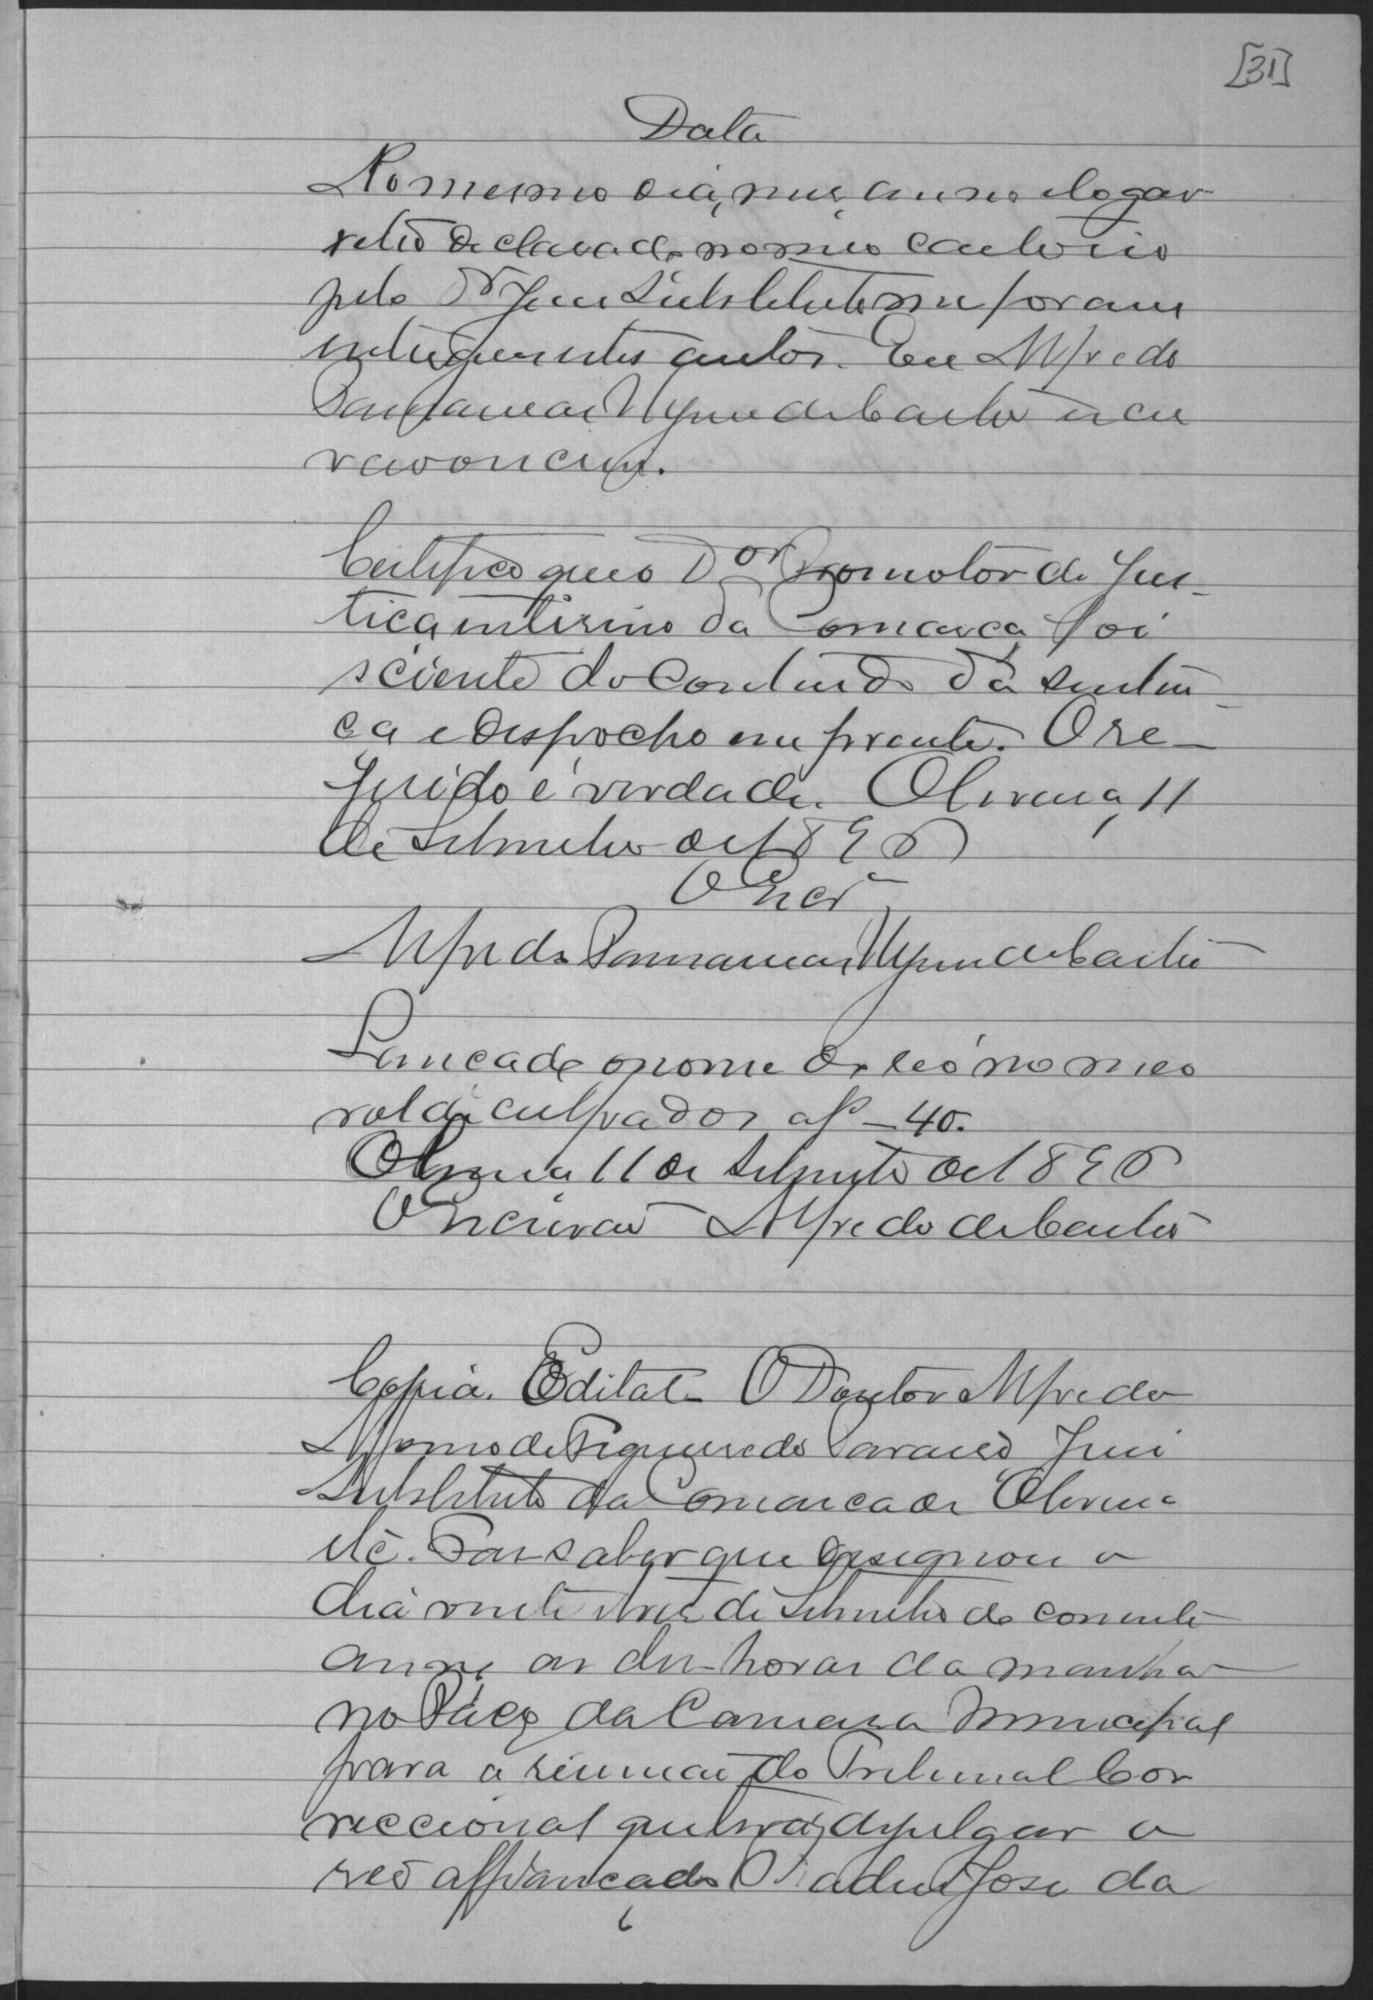 [31]
Data
No mesmo dia, mez, anno e logar
retro declarado no meo cartorio
pelo Dr Juiz Substituto me foram
entregues estes autos. Eu Alfredo
de Castro escri
vão o escrevy.
Certifico que o Dor Promotor de Jus_
tiça interino da Comarca foi
sciente do conteudo da senten_
ça e despacho em frente. O re_
ferido é verdade. Olivença, 11
de Setembro de 1896
O Escrm
Alfredo de Castro
Lançado o nome do reó no meo
rol de culpados a f - 40.
Olivença 11 de Setembro de 1896
O Escrivão Alfredo de Castro
Copia. Edital. O Doutor Alfredo
Affonso de Figueiredo Paraiso Juiz
Substituto da Comarca de Olivença
etc. Faz saber que designou o
dia vinte e trez de Setembro do corrente
anno, as dez horas da manhã
no Páço da Camara Municipal
para a reunião do Tribunal Cor
reccional que terá, de julgar o
reó affiançado José da